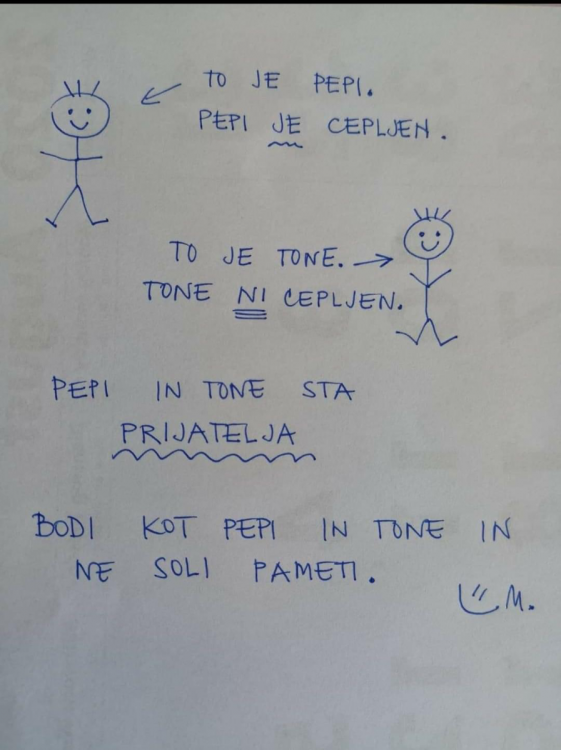 TO JE PEPI.
PEPI JE CEPLJEN.
TO JE TONE.
TONE NI CEPLJEN.
PEPI IN TONE STA
PRIJATELJA
BODI KOT PEPI IN TONE IN
NE SOLI PAMETI.
M.